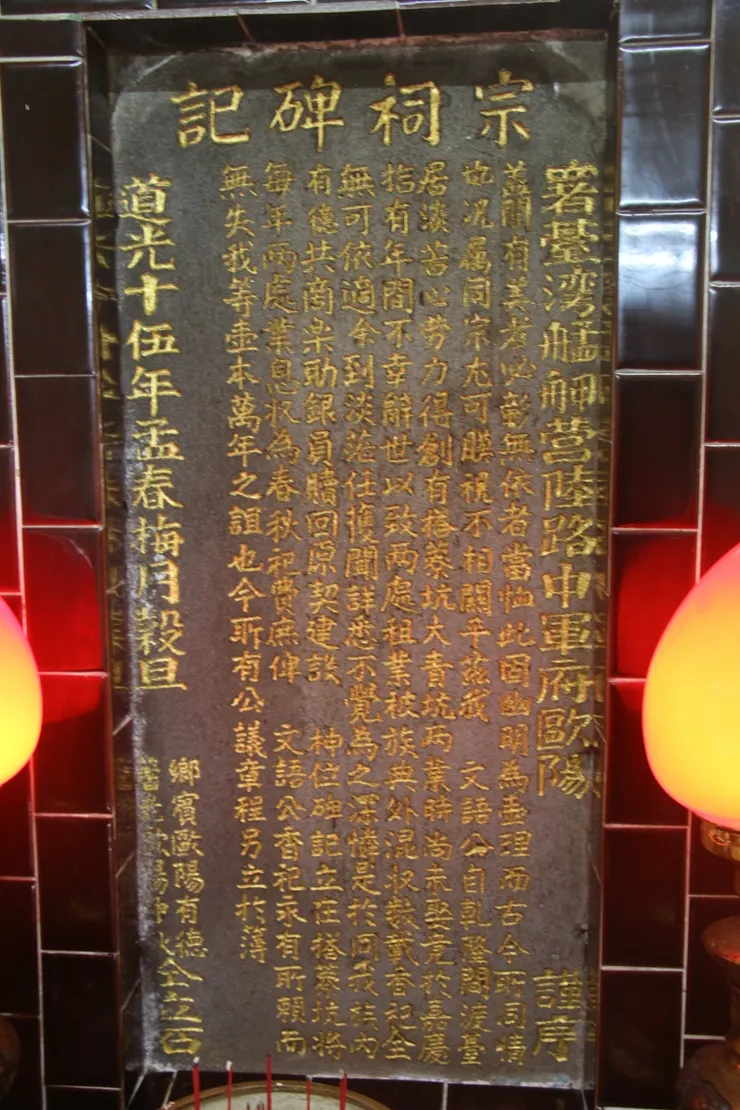 宗祠碑記
署臺湾艋舺营陸路中軍府歐陽 謹序
蓋聞有美者必彰無依者當恤此固幽明為壹理而古今所同情
也况属同宗尤可膜視不相關乎茲我 文語公自乾隆間渡臺
居淡苦心势力得創有搭蓁坑大青坑両業時尚未娶竟於嘉慶
指有年間不幸辭世以致两處租業被族典外混収数載香祀全
無可依適余到淡蒞任獲聞詳悉不覺為之深憐是於同我族内
有德共商楽助銀員贖回原契建設 神位碑記立在搭蓁坑將
每年両處業息収為春秋祀費庶俾 文語公香祀永有所賴而
無失我等壶本萬年之誼也今所有公議章程另立於薄
道光十伍年孟春梅月穀旦
鄉賓歐陽有德
歐陽仝立石